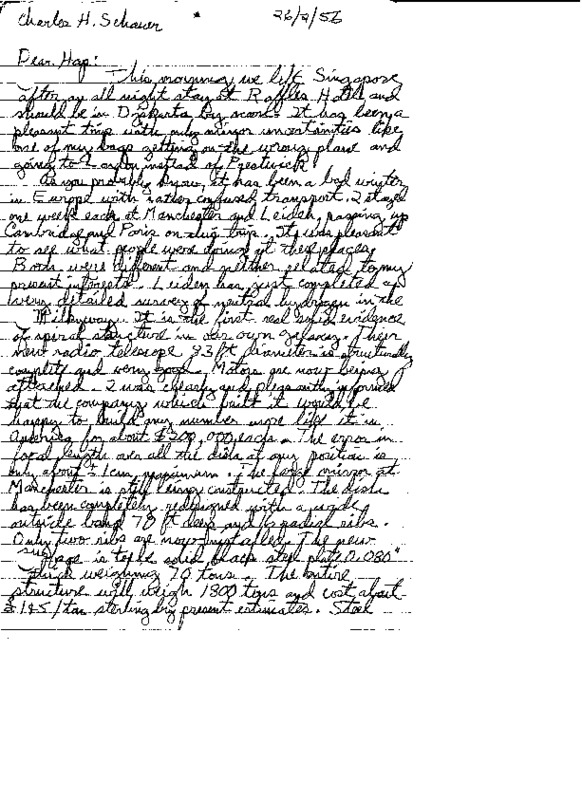 Charles H. Schauer 26/2/56
Dear Hap:
This morning we left Singapore
after an all night stay at Raffles Hotel and
should be in Djakarta by noon. It has been a
pleasant trip with only minor uncertainties like
one of my bags getting on the wrong plane and
going to London instead of Prestwick!
As you probably know, it has been a bad winter
in Europe with rather confused transport. I stayed
one week each at Manchester and Leiden, passing up
Cambridge and Paris on this trip. It was pleasant
to see what people were doing at these places.
Both were different and neither related to my
present interests. Leiden has just completed a
very detailed survey of neutral hydrogen in the
Milkyway. It is the first real solid evidence
of spiral structure in our own galaxy. Their
new radio telescope 83 ft diameter is structurally
complete and very good. Motors are now being
attached. I was clearly and pleasantly informed
that the company which built it would be
happy to build any number more like it in
America for about $200,000 each. The error in
focal length over all the dish at any position is
only about ± 1 cm maximum. The large mirror at
Manchester is still being constructed. The dish
has been completely redesigned with a
outside band 78 ft deep and radial ribs.
Only two ribs are now installed. The new
surface is to be solid black steel plate 0.080"
thick weighing 70 tons. The entire
structure will weigh 1800 tons and cost about
£145/ton sterling by present estimates. Steel